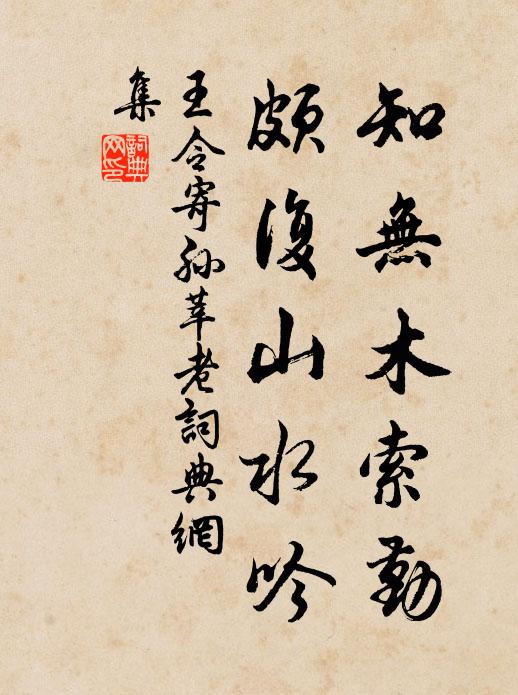 知無木索勤
頗復山水吟
王令寄孫莘老詞典網
集
詞典
網印